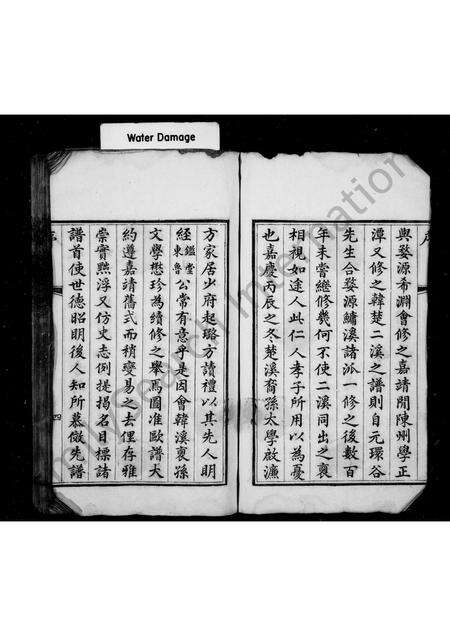 Water Damage
序
與婺源希淵會修之嘉靖間陳州學正
潭又修之韓楚二溪之譜則自元環谷
先生合婺源鱅溪諸派一修之後數百
年未嘗繼修幾何不使二溪同出之裒
相視如途人此仁人孝子所用以為憂
也嘉慶丙辰之冬楚溪裔孫太學啟濂
方家居少府起璐方讀禮以其先人明
經鑑堂東魯公常有意乎是因會韓溪裒孫
文學懋珍為續修之舉焉圖准歐譜大
約遵嘉靖舊式而稍變易之去俚存雅
崇實黜浮又仿史志例提揭名目標諸
譜首使世德昭明後人知所慕做先譜
四
FamilySearch International